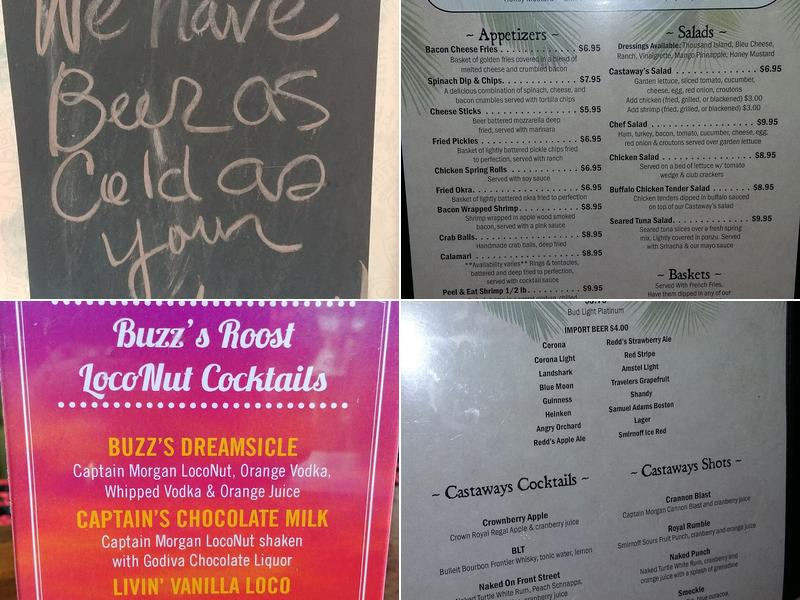 We have
Beer as
Cold as
your
~ Appetizers ~
Bacon Cheese Fries . . . . . . . . . . . . . $6.95
Basket of golden fries covered in a blend of
melted cheese and crumbled bacon
Spinach Dip & Chips. . . . . . . . . . . . . $7.95
A delicious combination of spinach, cheese, and
bacon crumbles served with tortilla chips
Cheese Sticks . . . . . . . . . . . . . . . . $5.95
Beer battered mozzarella deep
fried, served with marinara
Fried Pickles . . . . . . . . . . . . . . . . $6.95
Basket of lightly battered pickle chips fried
to perfection, served with ranch
Chicken Spring Rolls . . . . . . . . . . . . $6.95
Served with soy sauce
Fried Okra. . . . . . . . . . . . . . . . . . $6.95
Basket of lightly battered okra fried to perfection
Bacon Wrapped Shrimp . . . . . . . . . . . $8.95
Shrimp wrapped in apple wood smoked
bacon, served with a pink sauce
Crab Balls. . . . . . . . . . . . . . . . . . $8.95
Handmade crab balls, deep fried
Calamari . . . . . . . . . . . . . . . . . . $8.95
**Availability varies** Rings & tentacles,
battered and deep fried to perfection,
served with cocktail sauce
Peel & Eat Shrimp 1/2 lb . . . . . . . . . . $9.95
~ Salads ~
Dressings Available: Thousand Island, Bleu Cheese,
Ranch, Vinaigrette, Mango Pineapple, Honey Mustard
Castaway's Salad . . . . . . . . . . . . . . $6.95
Garden lettuce, sliced tomato, cucumber,
cheese, egg, red onion, croutons
Add chicken (fried, grilled, or blackened) $3.00
Add shrimp (fried, grilled, or blackened) $3.00
Chef Salad . . . . . . . . . . . . . . . . . $9.95
Ham, turkey, bacon, tomato, cucumber, cheese, egg,
red onion & croutons served over garden lettuce
Chicken Salad . . . . . . . . . . . . . . . $8.95
Served on a bed of lettuce w/ tomato
wedge & club crackers
Buffalo Chicken Tender Salad . . . . . . . . $8.95
Chicken tenders dipped in buffalo sauced
on top of our Castaway's salad
Seared Tuna Salad. . . . . . . . . . . . . . $9.95
Seared tuna slices over a fresh spring
mix, Lightly covered in ponzu. Served
with Sriracha & our mayo sauce
~ Baskets ~
Served With French Fries.
Have them dipped in any of our
Buzz's Roost
LocoNut Cocktails
BUZZ'S DREAMSICLE
Captain Morgan LocoNut, Orange Vodka,
Whipped Vodka & Orange Juice
CAPTAIN'S CHOCOLATE MILK
Captain Morgan LocoNut shaken
with Godiva Chocolate Liquor
LIVIN' VANILLA LOCO
Bud Light Platinum
IMPORT BEER $4.00
Corona
Corona Light
Landshark
Blue Moon
Guinness
Heinken
Angry Orchard
Redd's Apple Ale
Redd's Strawberry Ale
Red Stripe
Amstel Light
Travelers Grapefruit
Shandy
Samuel Adams Boston
Lager
Smirnoff Ice Red
~ Castaways Cocktails ~
Crownberry Apple
Crown Royal Regal Apple & cranberry juice
BLT
Bulleit Bourbon Frontier Whisky, tonic water, lemon
Naked On Front Street
Naked Turtle White Rum, Peach Schnapps,
cranberry juice
~ Castaways Shots ~
Crannon Blast
Captain Morgan Cannon Blast and cranberry juice
Royal Rumble
Smirnoff Sours Fruit Punch, cranberry and orange juice
Naked Punch
Naked Turtle White Rum, cranberry and
orange juice with a splash of grenadine
Smeckle